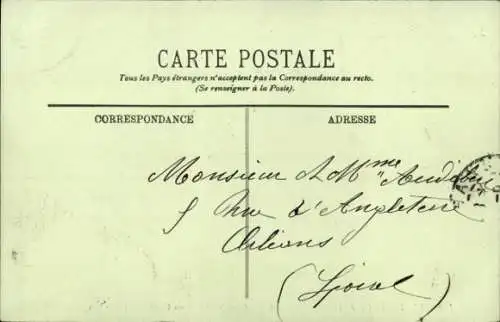 CARTE POSTALE
Tous les Pays étrangers n'acceptent pas la Correspondance au recto.
(Se renseigner à la Poste).
CORRESPONDANCE
ADRESSE
Monsieur & Mme
5 Rue d'Angleterre
Orléans
(Loiret